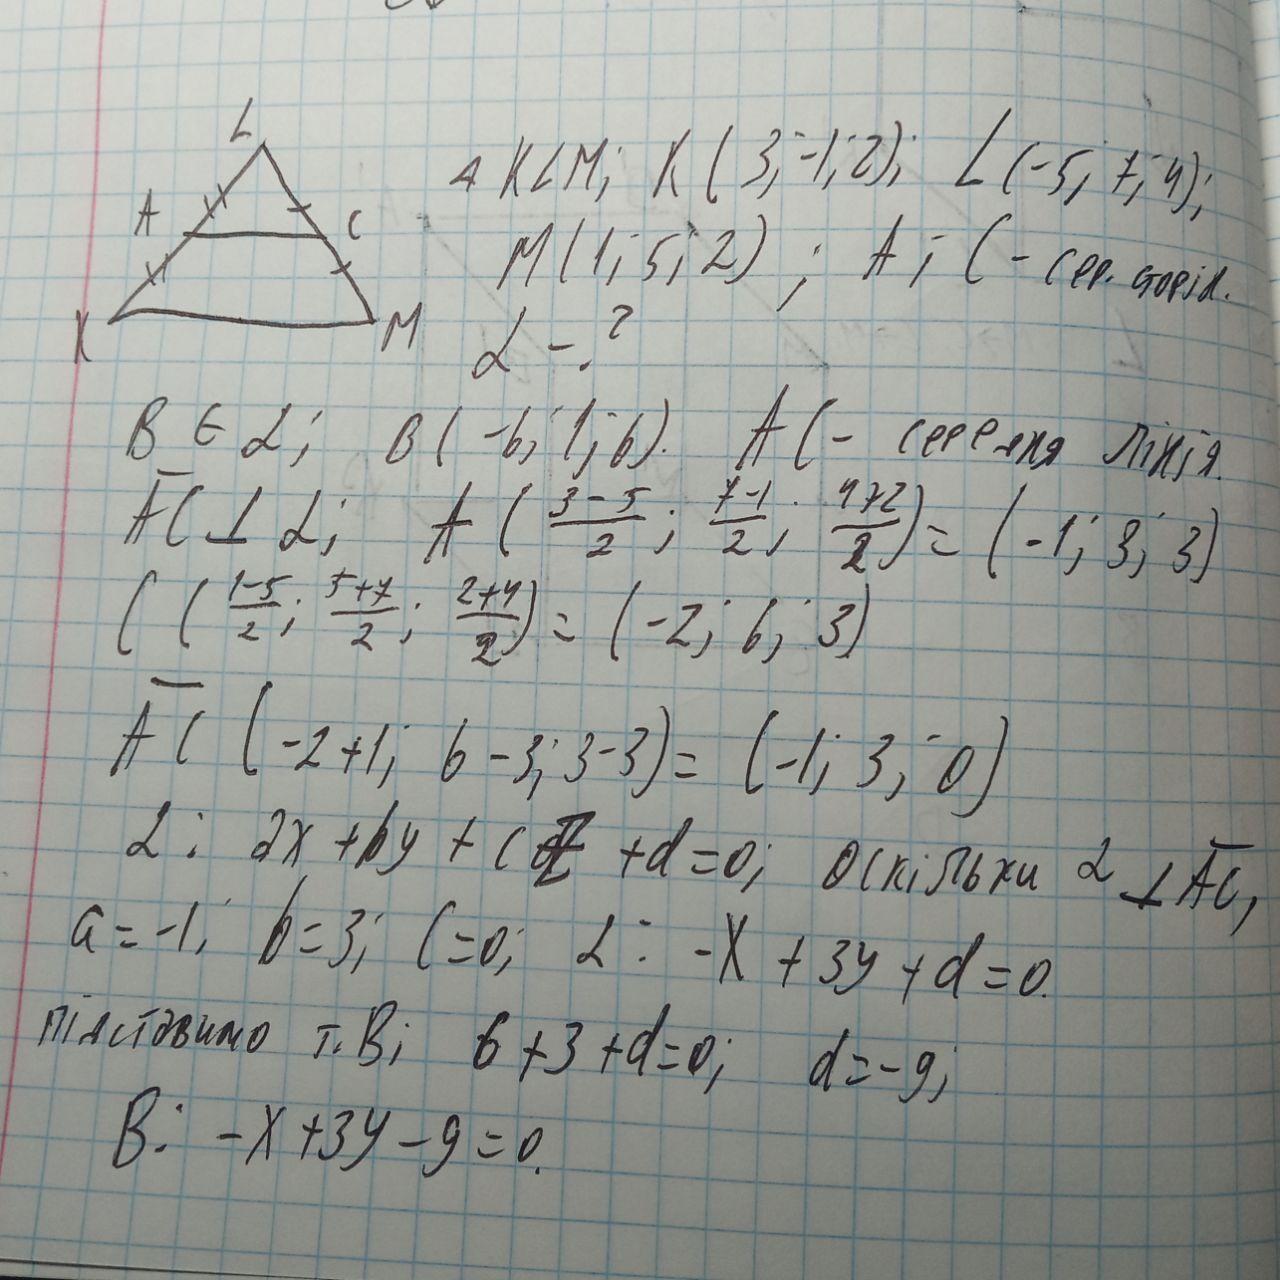 L
A
C
K
M
△ KLM; K(3;-1;2); L(-5;7;4);
M(1;5;2); A; C - сер. сторін.
α - ?
B ∈ α; B(-6;1;6). AC - середня лінія.
A̅C̅ ⊥ α; A(\frac{3-5}{2}; \frac{7-1}{2}; \frac{4+2}{2}) = (-1; 3; 3)
C(\frac{1-5}{2}; \frac{5+7}{2}; \frac{2+4}{2}) = (-2; 6; 3)
A̅C̅ (-2+1; 6-3; 3-3) = (-1; 3; 0)
α: ax + by + cz + d = 0; оскільки α ⊥ A̅C̅,
a = -1; b = 3; c = 0; α: -x + 3y + d = 0.
підставимо т. B; 6 + 3 + d = 0; d = -9;
В: -x + 3y - 9 = 0.